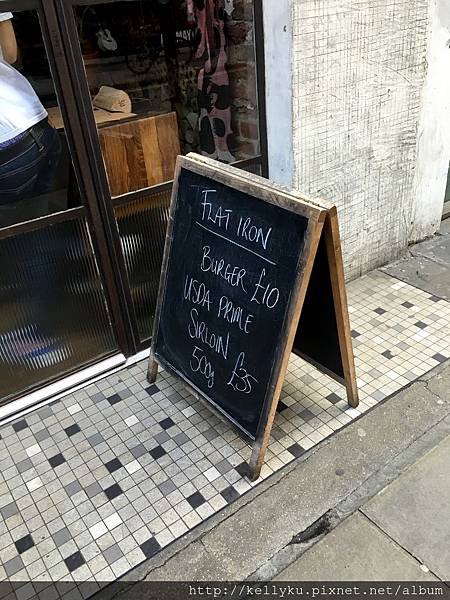 FLAT IRON
BURGER £10
USDA PRIME
SIRLOIN
500g £35
http://kellyku.pixnet.net/album